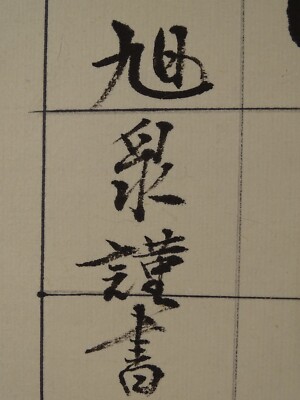 旭泉謹書